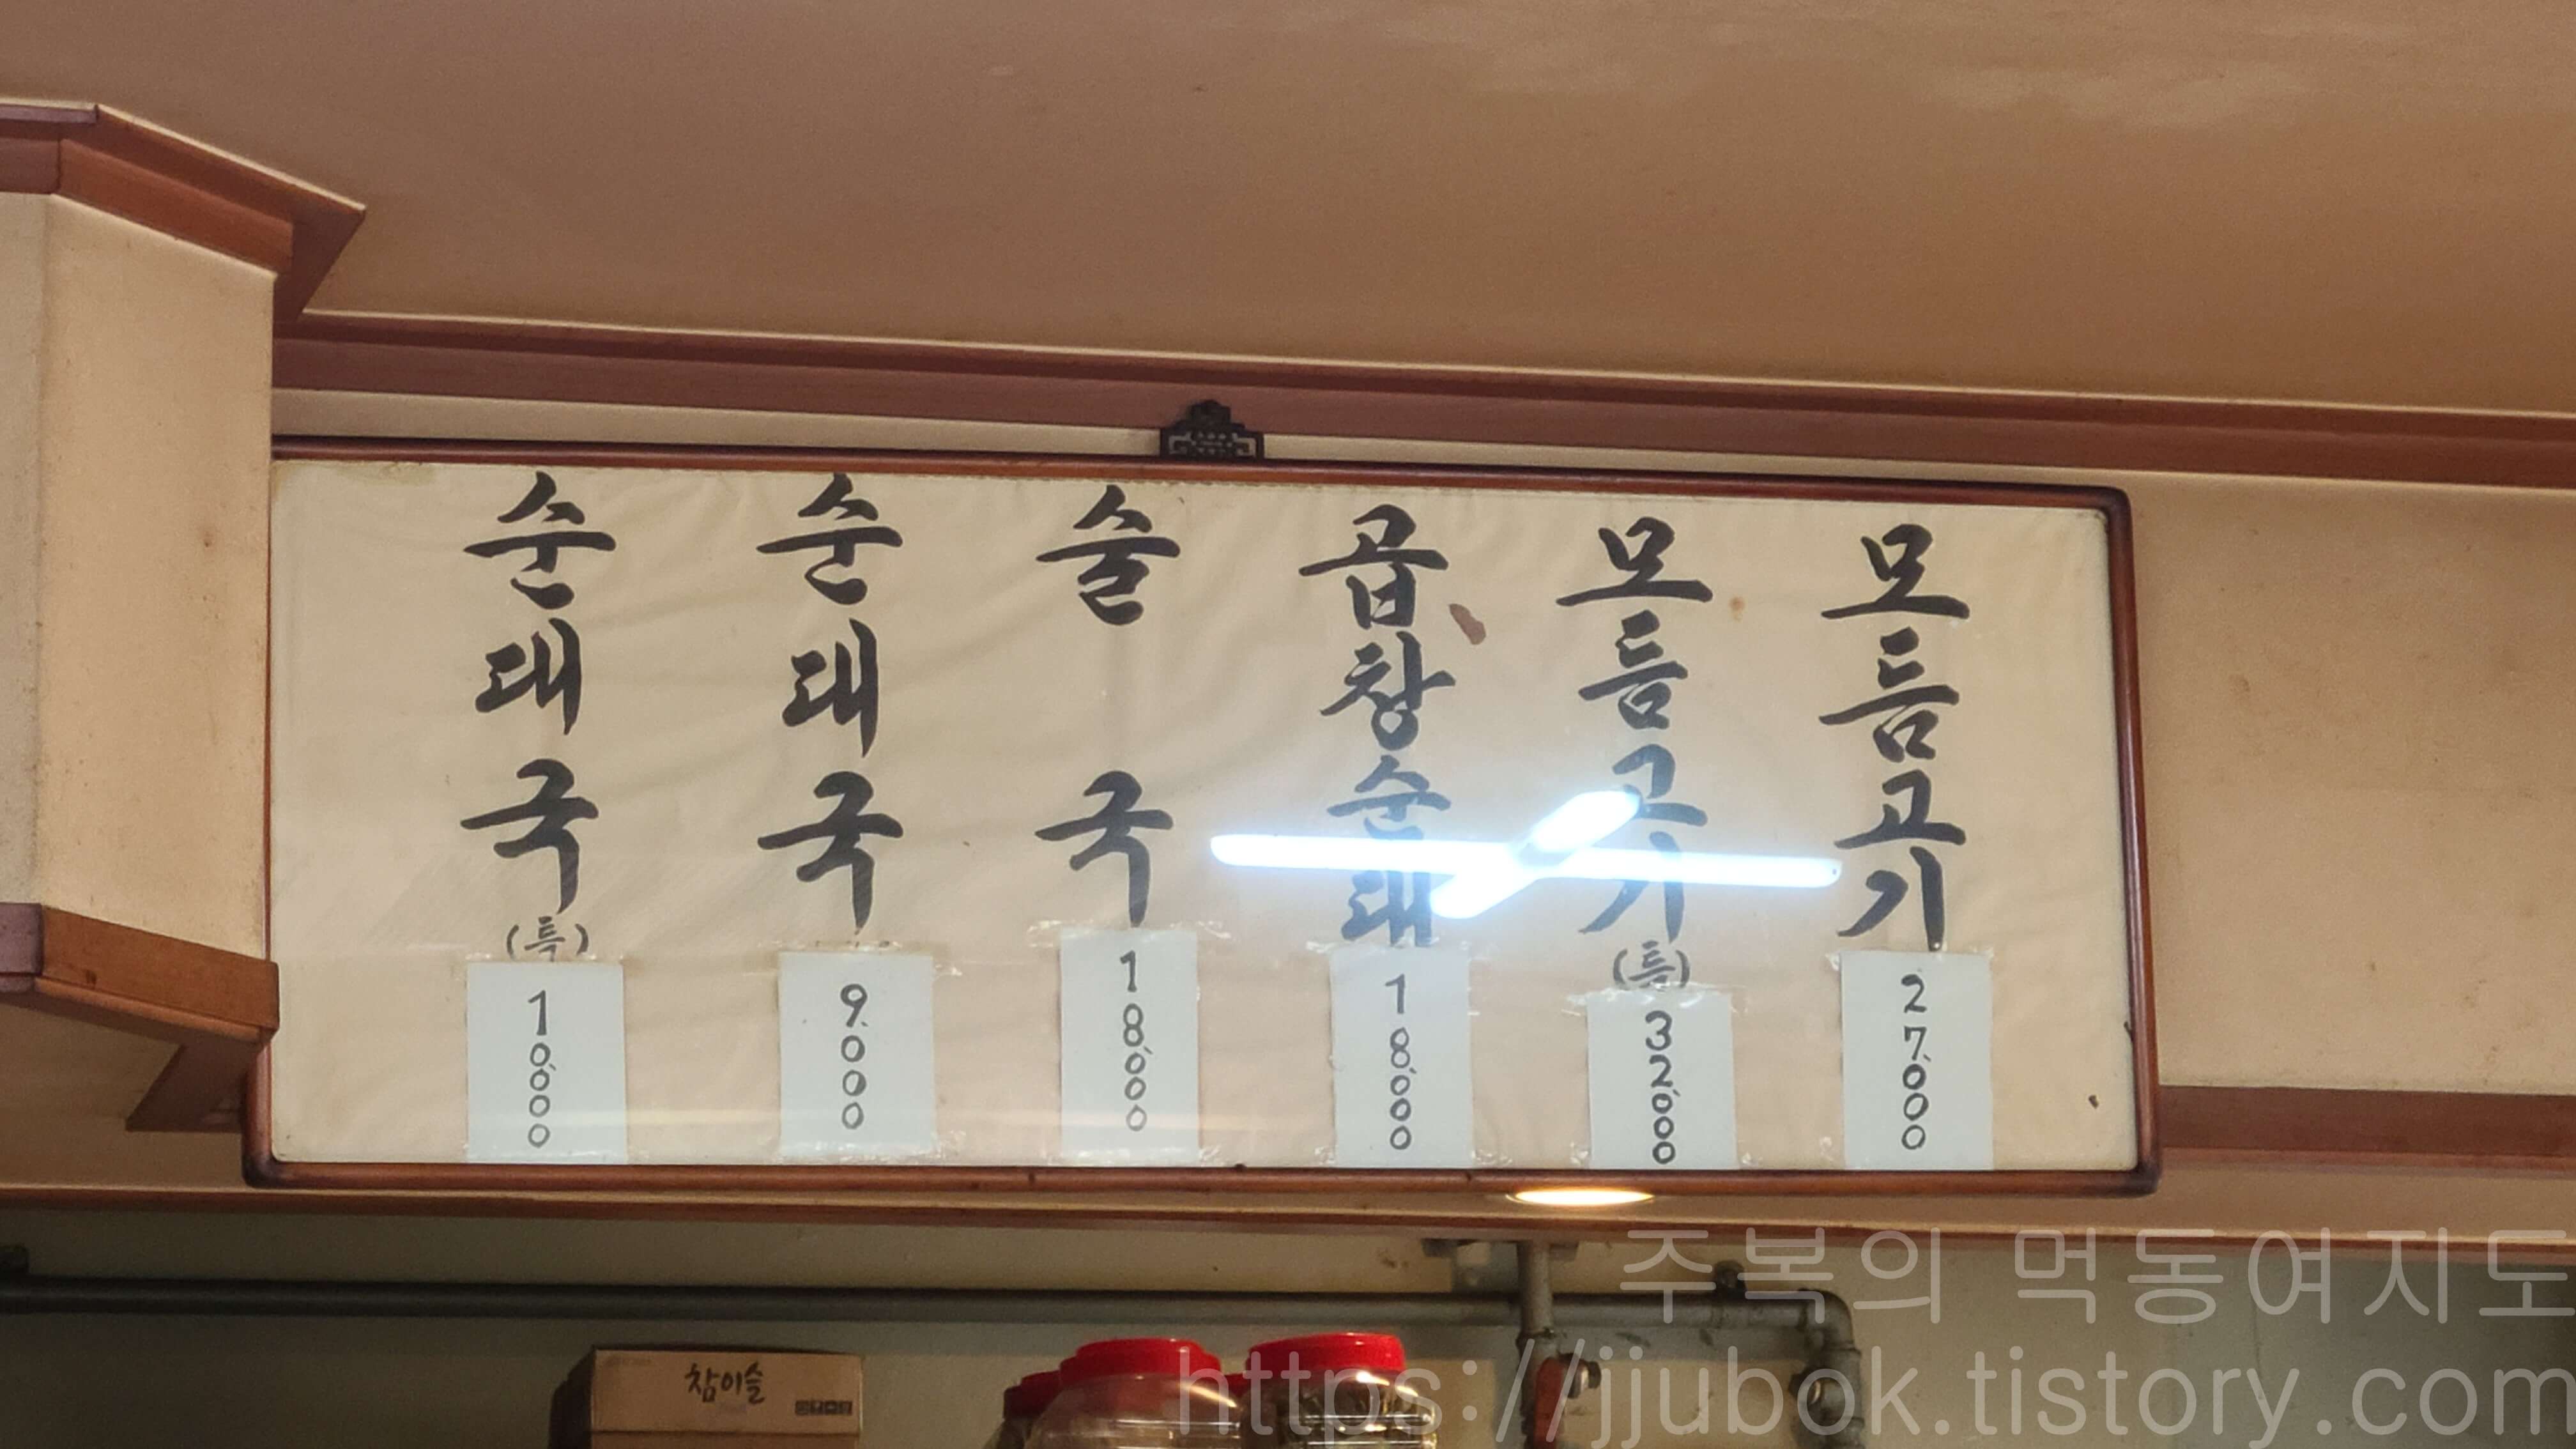 순대국
(특)
10,000
순대국
9,000
술국
18,000
곱창순대
18,000
모듬고기
(특)
32,000
모듬고기
27,000
참이슬
주복의 먹동여지도
https://jjubok.tistory.com